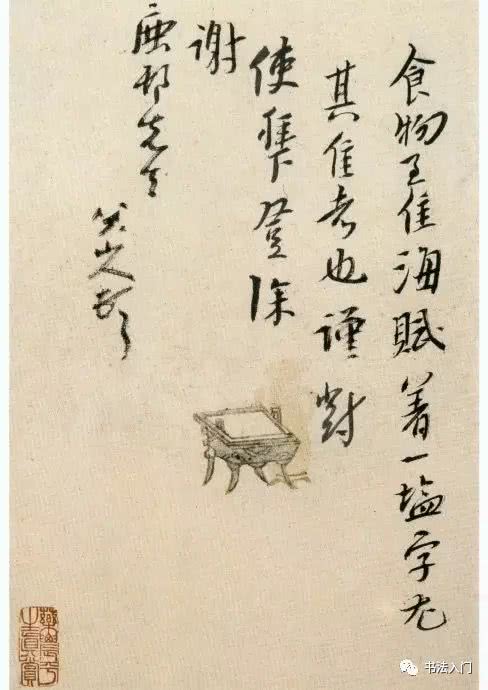 食物至佳海賦著一塩字尤
其佳者也謹對
使拜登深
謝
鹿邨先生
八大山人
书法入门